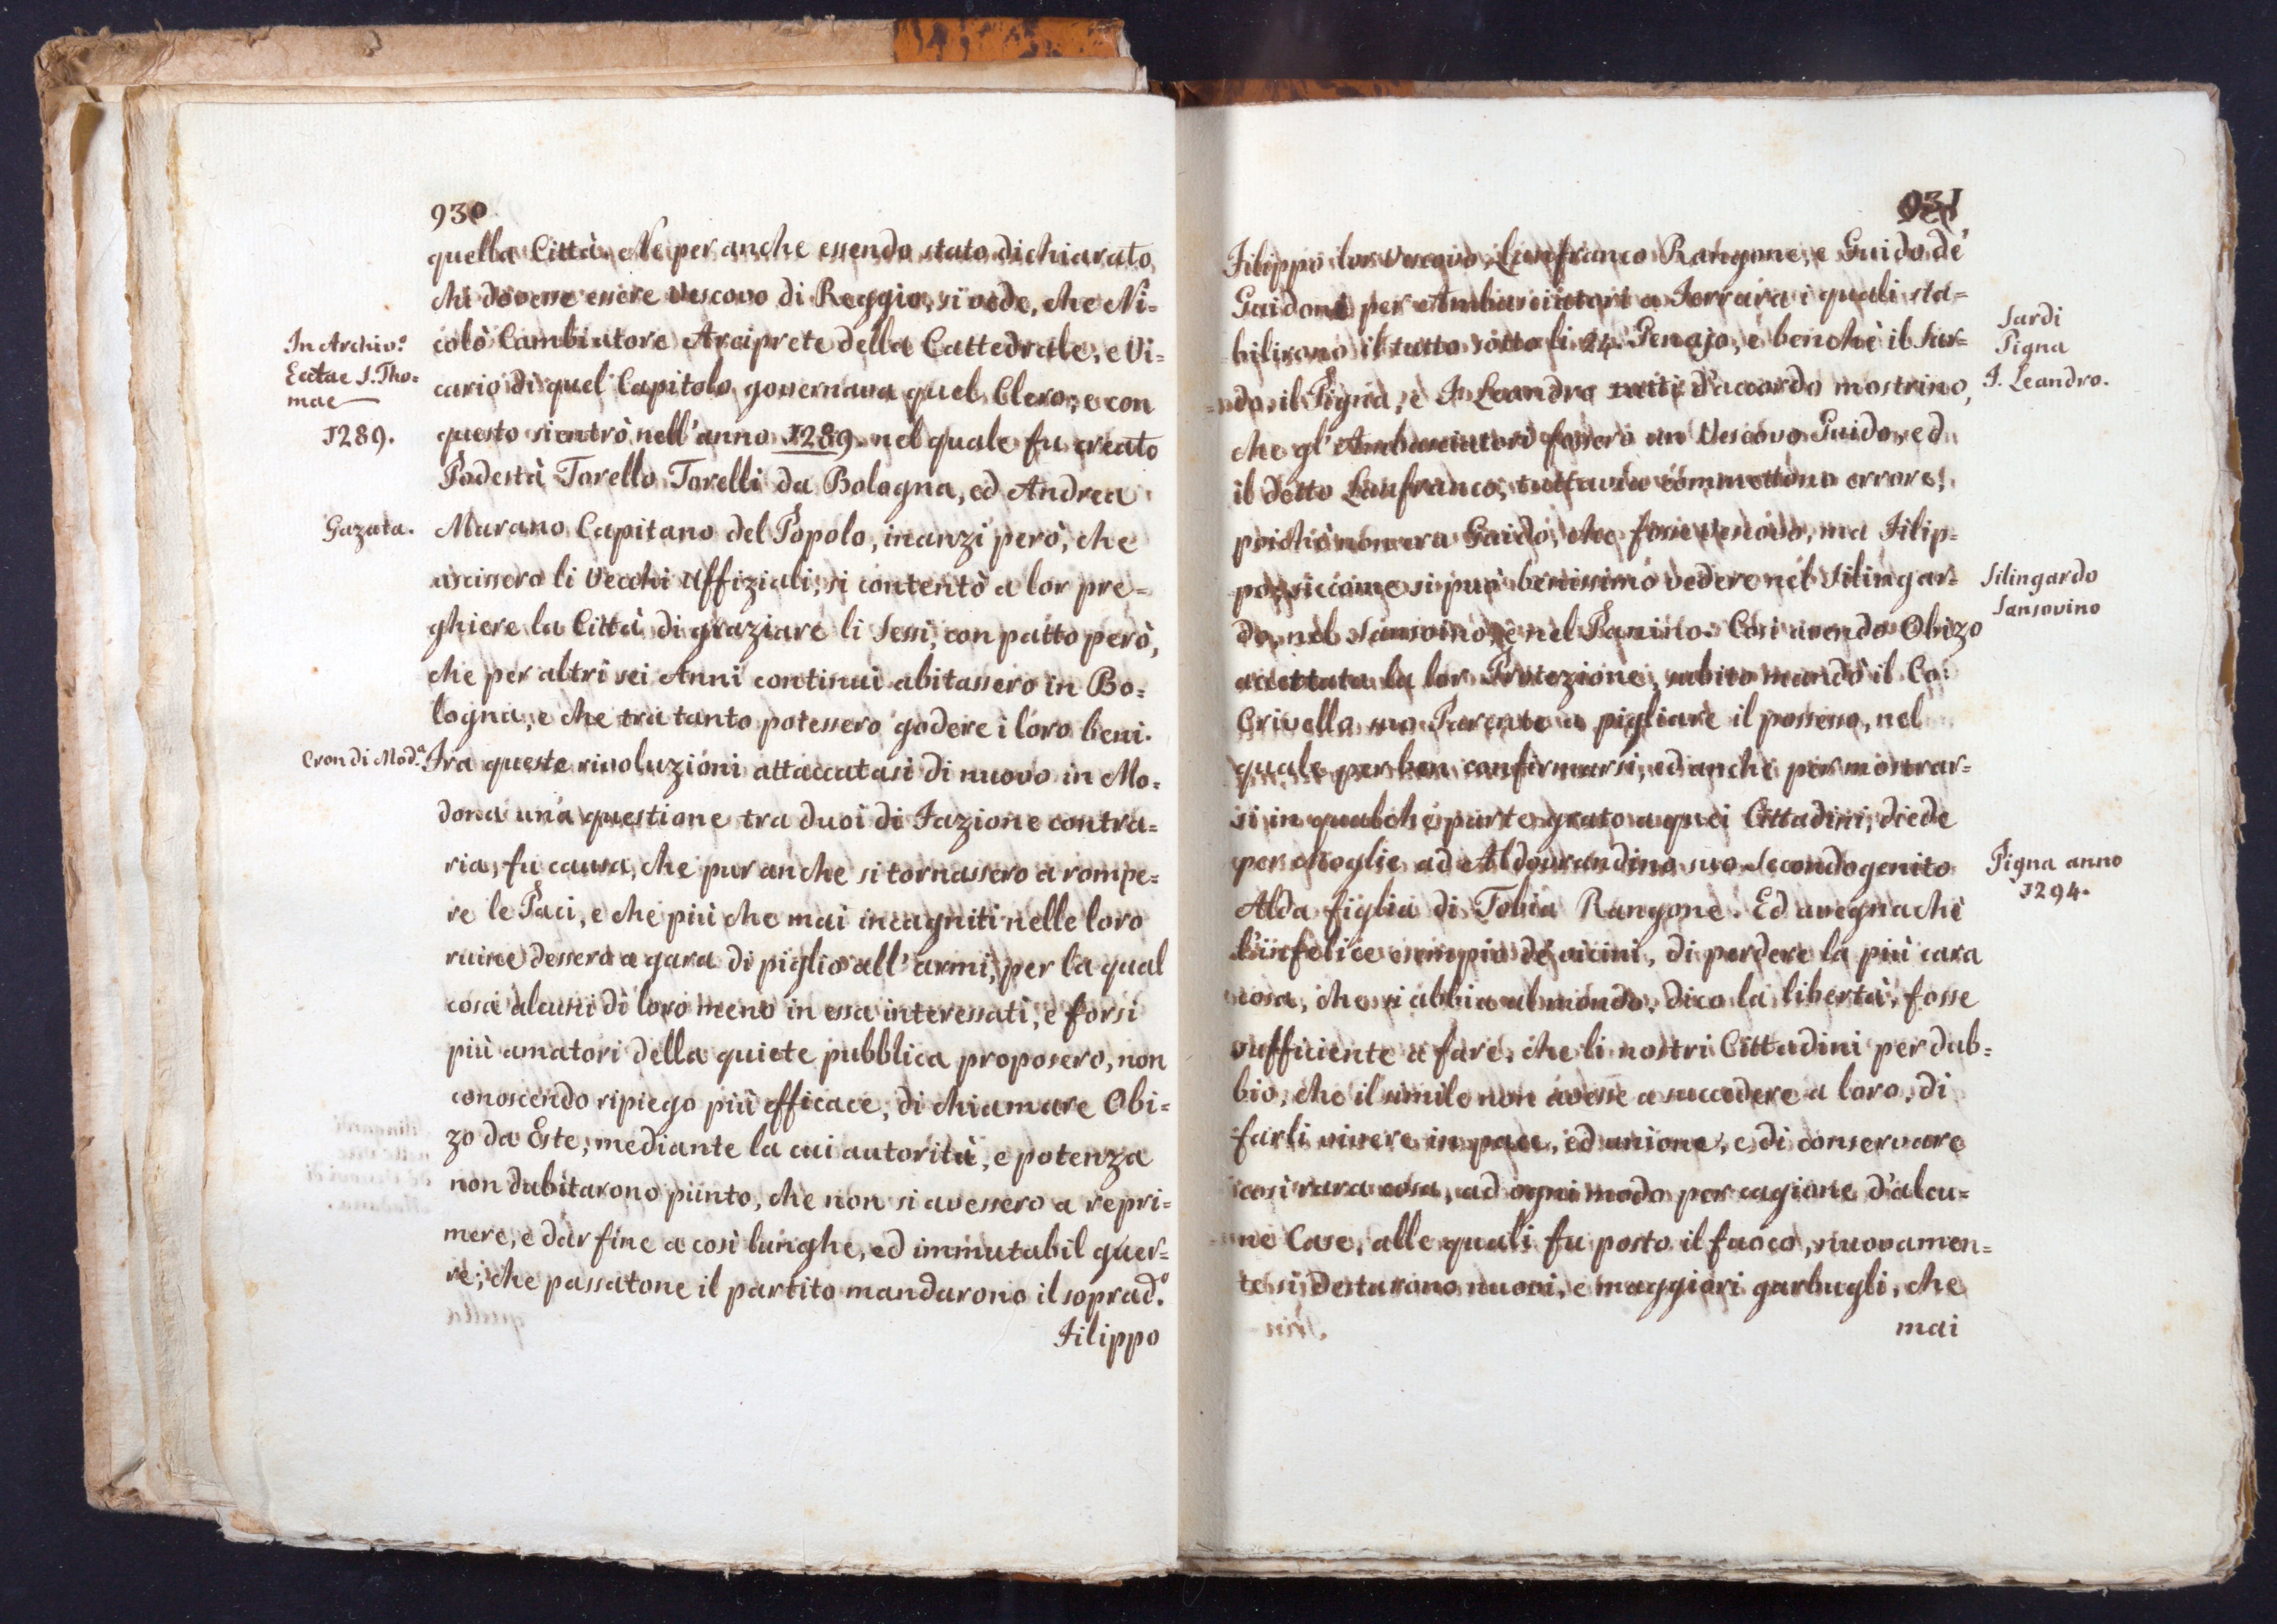 930
quella Città. Ne per anche essendo stato dichiarato,
chi dovesse essere Vescovo di Reggio, si vede, che Ni=
In Archiv.º
colò Cambiatore Arciprete della Cattedrale, e Vi=
Ecctae S. Tho=
mae
cario di quel Capitolo governava quel Clero; e con
1289.
questo si entrò nell'anno 1289. nel quale fu creato
Podestà Torello Torelli da Bologna, ed Andrea
Gazata.
Marano Capitano del Popolo, inanzi però, che
uscissero li Vecchi Uffiziali, si contentò a lor pre=
ghiere la Città di graziare li Sessi, con patto però,
che per altri sei Anni continui abitassero in Bo=
logna, e che tra tanto potessero godere i loro beni.
Cron di Mod.ª
Fra queste rivoluzioni attaccatasi di nuovo in Mo=
dona una questione tra duoi di Fazione contra=
ria, fu causa, che pur anche si tornassero a rompe=
re le Paci, e che più che mai incagniti nelle loro
ruine dessero a gara di piglio all'armi, per la qual
cosa alcuni di loro meno in essa interessati, e forsi
più amatori della quiete pubblica proposero, non
conoscendo ripiego più efficace, di chiamare Obi=
zo da Este, mediante la cui autorità, e potenza
non dubitarono punto, che non si avessero a repri=
mere, e dar fine a così lunghe, ed immutabil guer=
re; che passatone il partito mandarono il soprad.º
Filippo
931
Filippo lor Vescovo, Lanfranco Rangone, e Guido de'
Guidoni per Ambasciatori a Ferrara i quali sta=
Sardi
Pigna
F. Leandro.
bilirono il tutto sotto li 24. Genajo, e benchè il Sar=
do, il Pigna, e F. Leandro tutti d'accordo mostrino,
che gl'Ambasciatori fossero un Vescovo Guido, ed
il detto Lanfranco, tuttavia commettono errore,
poichè non era Guido, che fosse Vescovo, ma Filip=
Silingardo
Sansovino
po, siccome si può benissimo vedere nel Silingar=
do, nel Sansoino, e nel Panino. Così avendo Obizo
accettata la lor Protezione, subito mandò il Co:
Crivello suo Parente a pigliare il possesso, nel
quale per ben confirmarsi, ed anche per mostrar=
si in qualche parte grato a quei Cittadini, diede
Pigna anno
1294.
per Moglie ad Aldovrandino suo Secondogenito
Alda figlia di Tobia Rangone. Ed avegnachè
l'infelice esempio de' vicini, di perdere la più cara
cosa, che si abbia al mondo, dico la libertà, fosse
sufficiente a fare, che li nostri Cittadini per dub=
bio, che il simile non avesse a succedere a loro, di
farli vivere in pace, ed unione, e di conservare
così rara cosa, ad ogni modo per cagione d'alcu=
ne Case, alle quali fu posto il fuoco, nuovamen=
te si destarono nuovi, e maggiori garbugli, che
mai